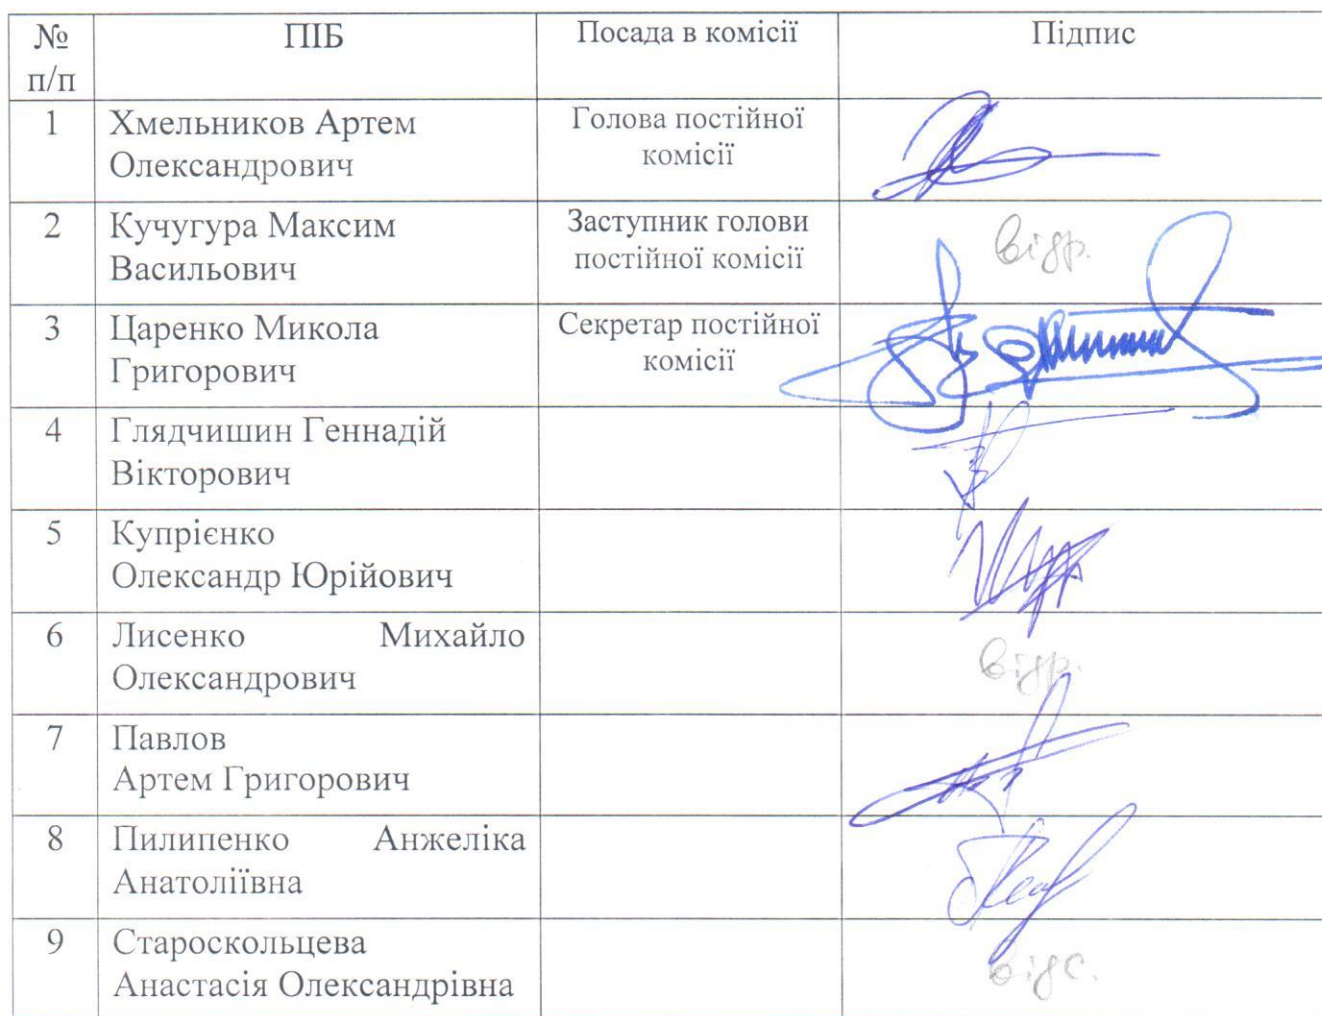 № п/п ПІБ Посада в комісії Підпис
1 Хмельников Артем Олександрович Голова постійної комісії
2 Кучугура Максим Васильович Заступник голови постійної комісії відр.
3 Царенко Микола Григорович Секретар постійної комісії
4 Глядчишин Геннадій Вікторович
5 Купрієнко Олександр Юрійович
6 Лисенко Михайло Олександрович відр.
7 Павлов Артем Григорович
8 Пилипенко Анжеліка Анатоліївна
9 Староскольцева Анастасія Олександрівна відс.